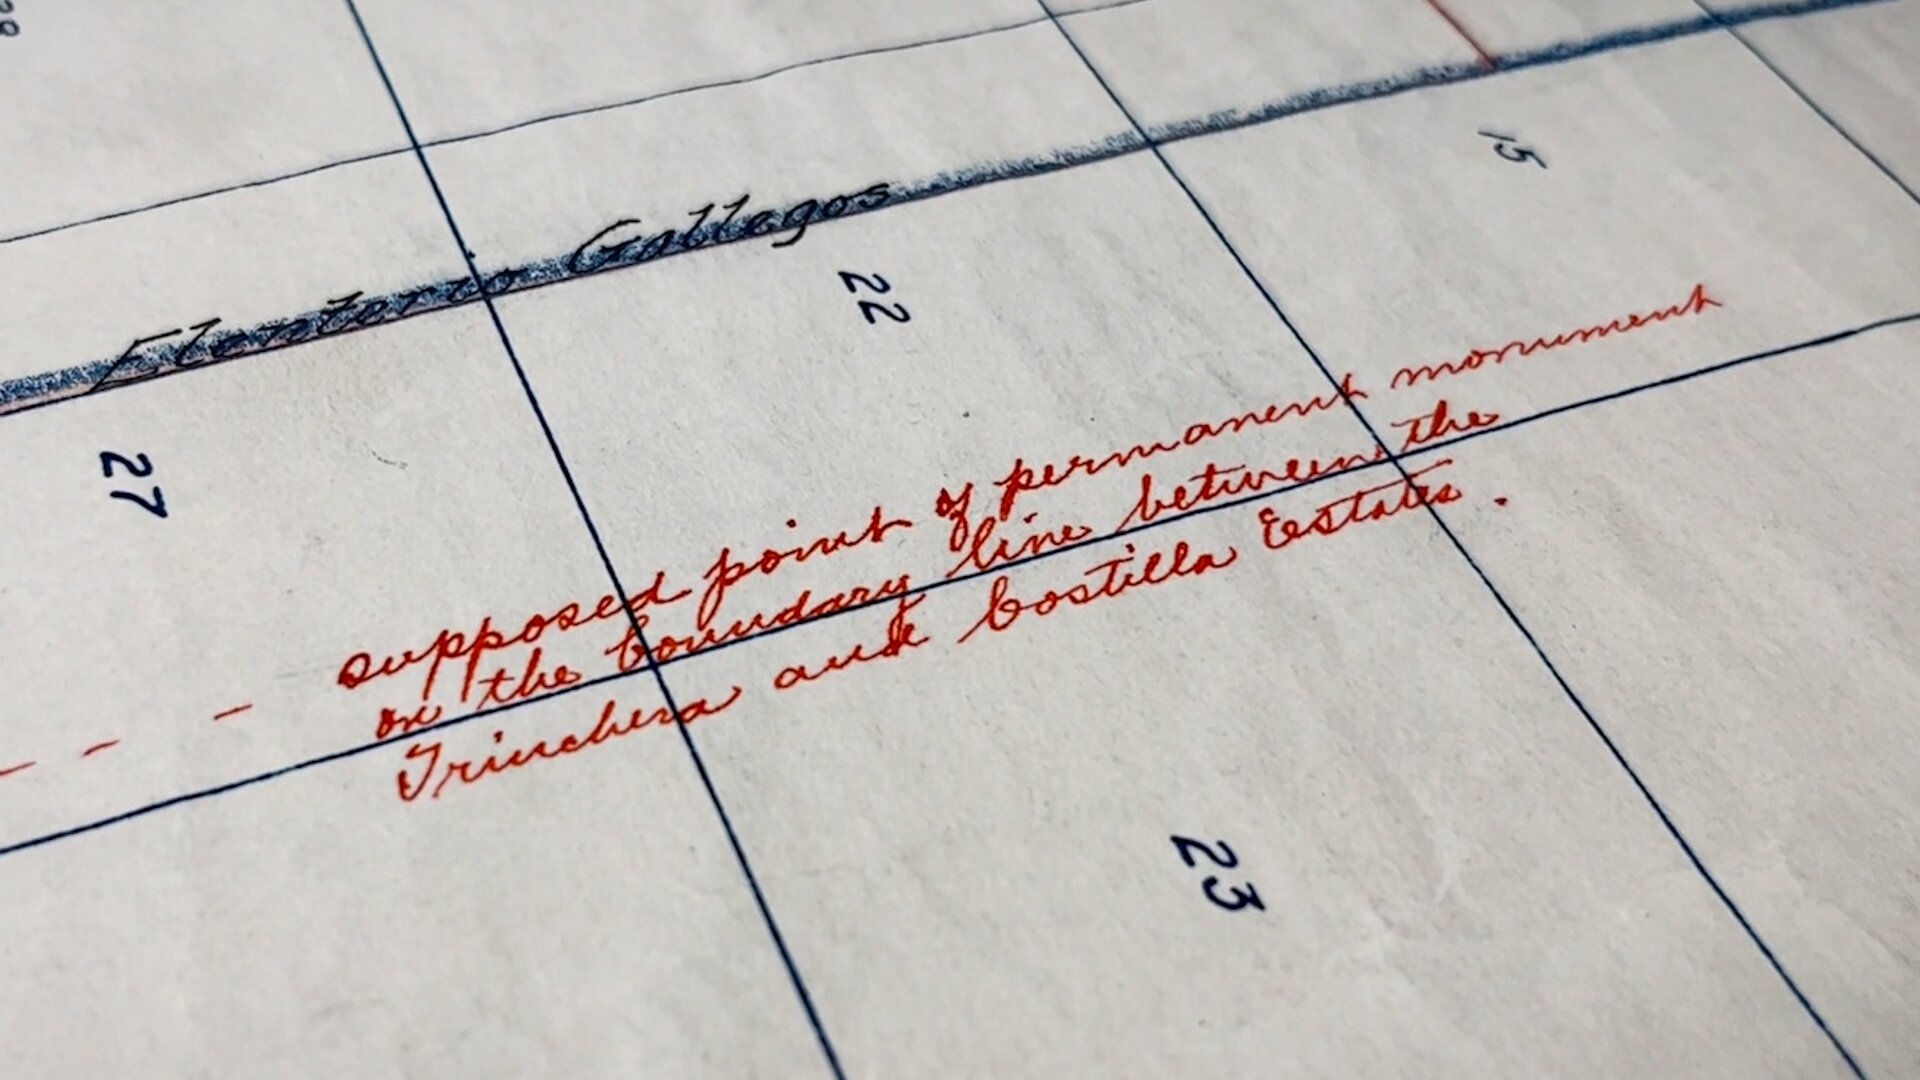 15
Elenterio Gallegos
22
27
supposed point of permanent monument
on the boundary line between the
Trinchera and Costilla Estates.
23